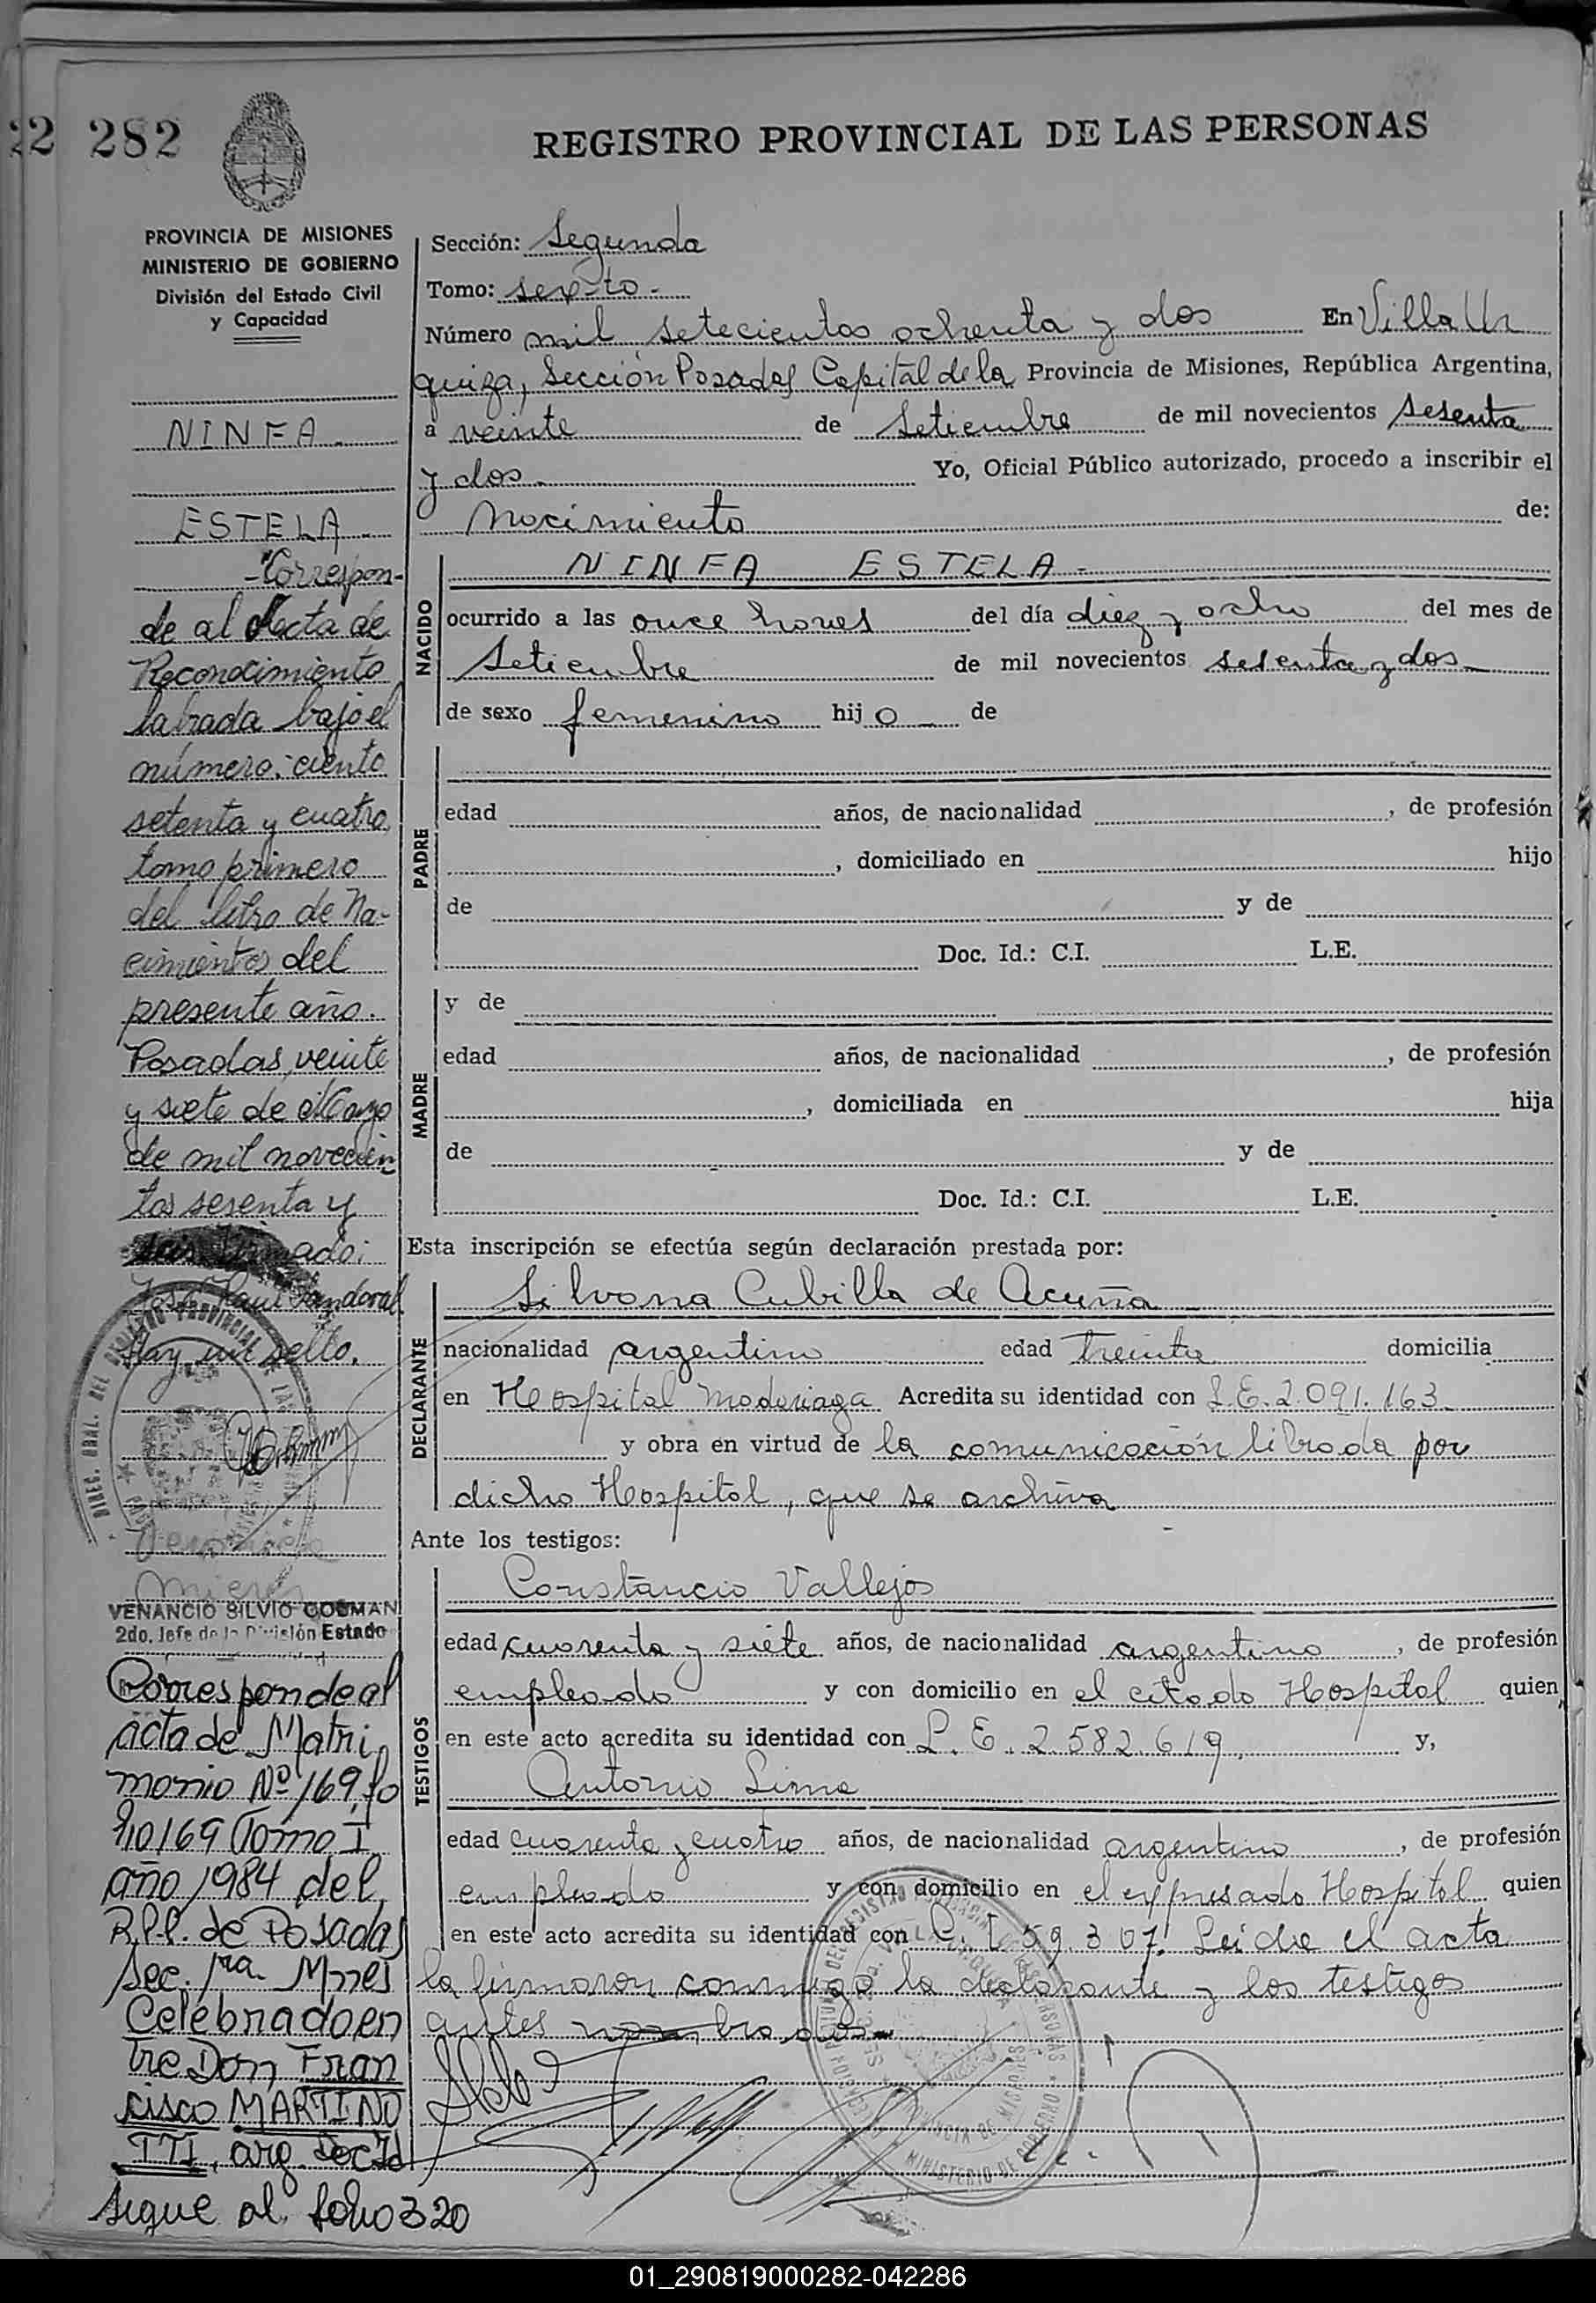 22 282
REGISTRO PROVINCIAL DE LAS PERSONAS
PROVINCIA DE MISIONES
MINISTERIO DE GOBIERNO
División del Estado Civil
y Capacidad
NINFA.
ESTELA.
-Correspon-
de al Acta de
Reconocimiento
labrada bajo el
número: ciento
setenta y cuatro,
tomo primero
del libro de Na-
cimientos del
presente año.
Posadas, veinte
y siete de Mayo
de mil novecien
tos sesenta y
seis firmado:
José Raul Sandoval
Hay un sello.
VENANCIO SILVIO GUSMAN
2do. Jefe de la División Estado
Corresponde al
acta de Matri
monio Nº 169, fo
lio 169 Tomo I
año 1984 del
R.P.P. de Posadas
Sec. 1ra. Mnes
Celebrado en
tre Don Fran
cisco MARTINO
TTI, arg. Doc Id
Sigue al folio 320
Sección: Segunda
Tomo: sexto.-
Número mil setecientos ochenta y dos En Villa Ur
quiza, Sección Posadas Capital de la Provincia de Misiones, República Argentina,
a veinte de Setiembre de mil novecientos sesenta
y dos. Yo, Oficial Público autorizado, procedo a inscribir el
Nacimiento de:
NACIDO
NINFA ESTELA.-
ocurrido a las once horas del día diez y ocho del mes de
Setiembre de mil novecientos sesenta y dos
de sexo femenino hija de
PADRE
edad años, de nacionalidad , de profesión
, domiciliado en hijo
de y de
Doc. Id.: C.I. L.E.
MADRE
y de
edad años, de nacionalidad , de profesión
, domiciliada en hija
de y de
Doc. Id.: C.I. L.E.
Esta inscripción se efectúa según declaración prestada por:
DECLARANTE
Silvana Cubilla de Acuña
nacionalidad argentina edad treinta domicilia
en Hospital Madariaga Acredita su identidad con L.E. 2.091.163
y obra en virtud de la comunicación librada por
dicho Hospital, que se archiva
Ante los testigos:
TESTIGOS
Constancio Vallejos
edad cuarenta y siete años, de nacionalidad argentino, de profesión
empleado y con domicilio en el citado Hospital quien
en este acto acredita su identidad con L.E. 2.582.619 y,
Antonio Lima
edad cuarenta y cuatro años, de nacionalidad argentino, de profesión
empleado y con domicilio en el expresado Hospital quien
en este acto acredita su identidad con C.I. 59.307. Leida el acta
la firmaron conmigo la declarante y los testigos
antes nombrados.-
01_290819000282-042286